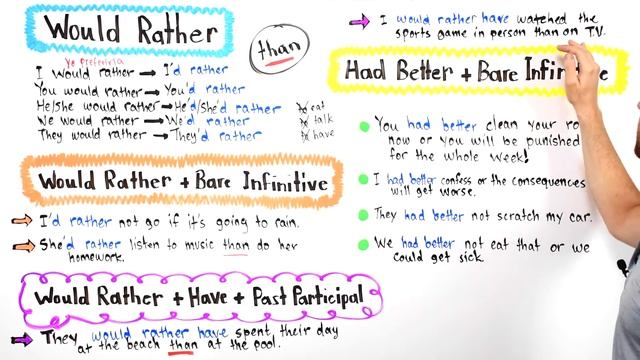 Would Rather
than
Yo preferiría
I would rather → I'd rather
You would rather → You'd rather
He/She would rather → He'd/She'd rather
We would rather → We'd rather
They would rather → They'd rather
to eat
to talk
to have
Would Rather + Bare Infinitive
I'd rather not go if it's going to rain.
She'd rather listen to music than do her
homework.
Would Rather + Have + Past Participal
They would rather have spent their day
at the beach than at the pool.
I would rather have watched the
sports game in person than on TV.
Had Better + Bare Infin e
You had better clean your ro
now or you will be punished
for the whole week!
I had better confess or the consequences
will get worse.
They had better not scratch my car.
We had better not eat that or we
could get sick.